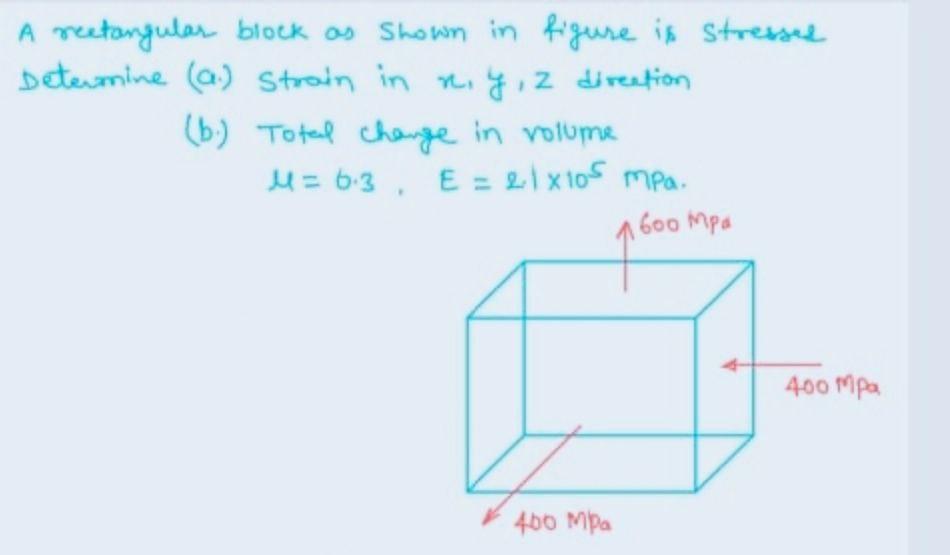 A rectangular block as shown in figure is stressed
Determine (a.) Strain in x, y, z direction
(b.) Total change in volume
μ = 0.3, E = 2.1 x 10⁵ mpa.
600 Mpa
400 Mpa
400 Mpa